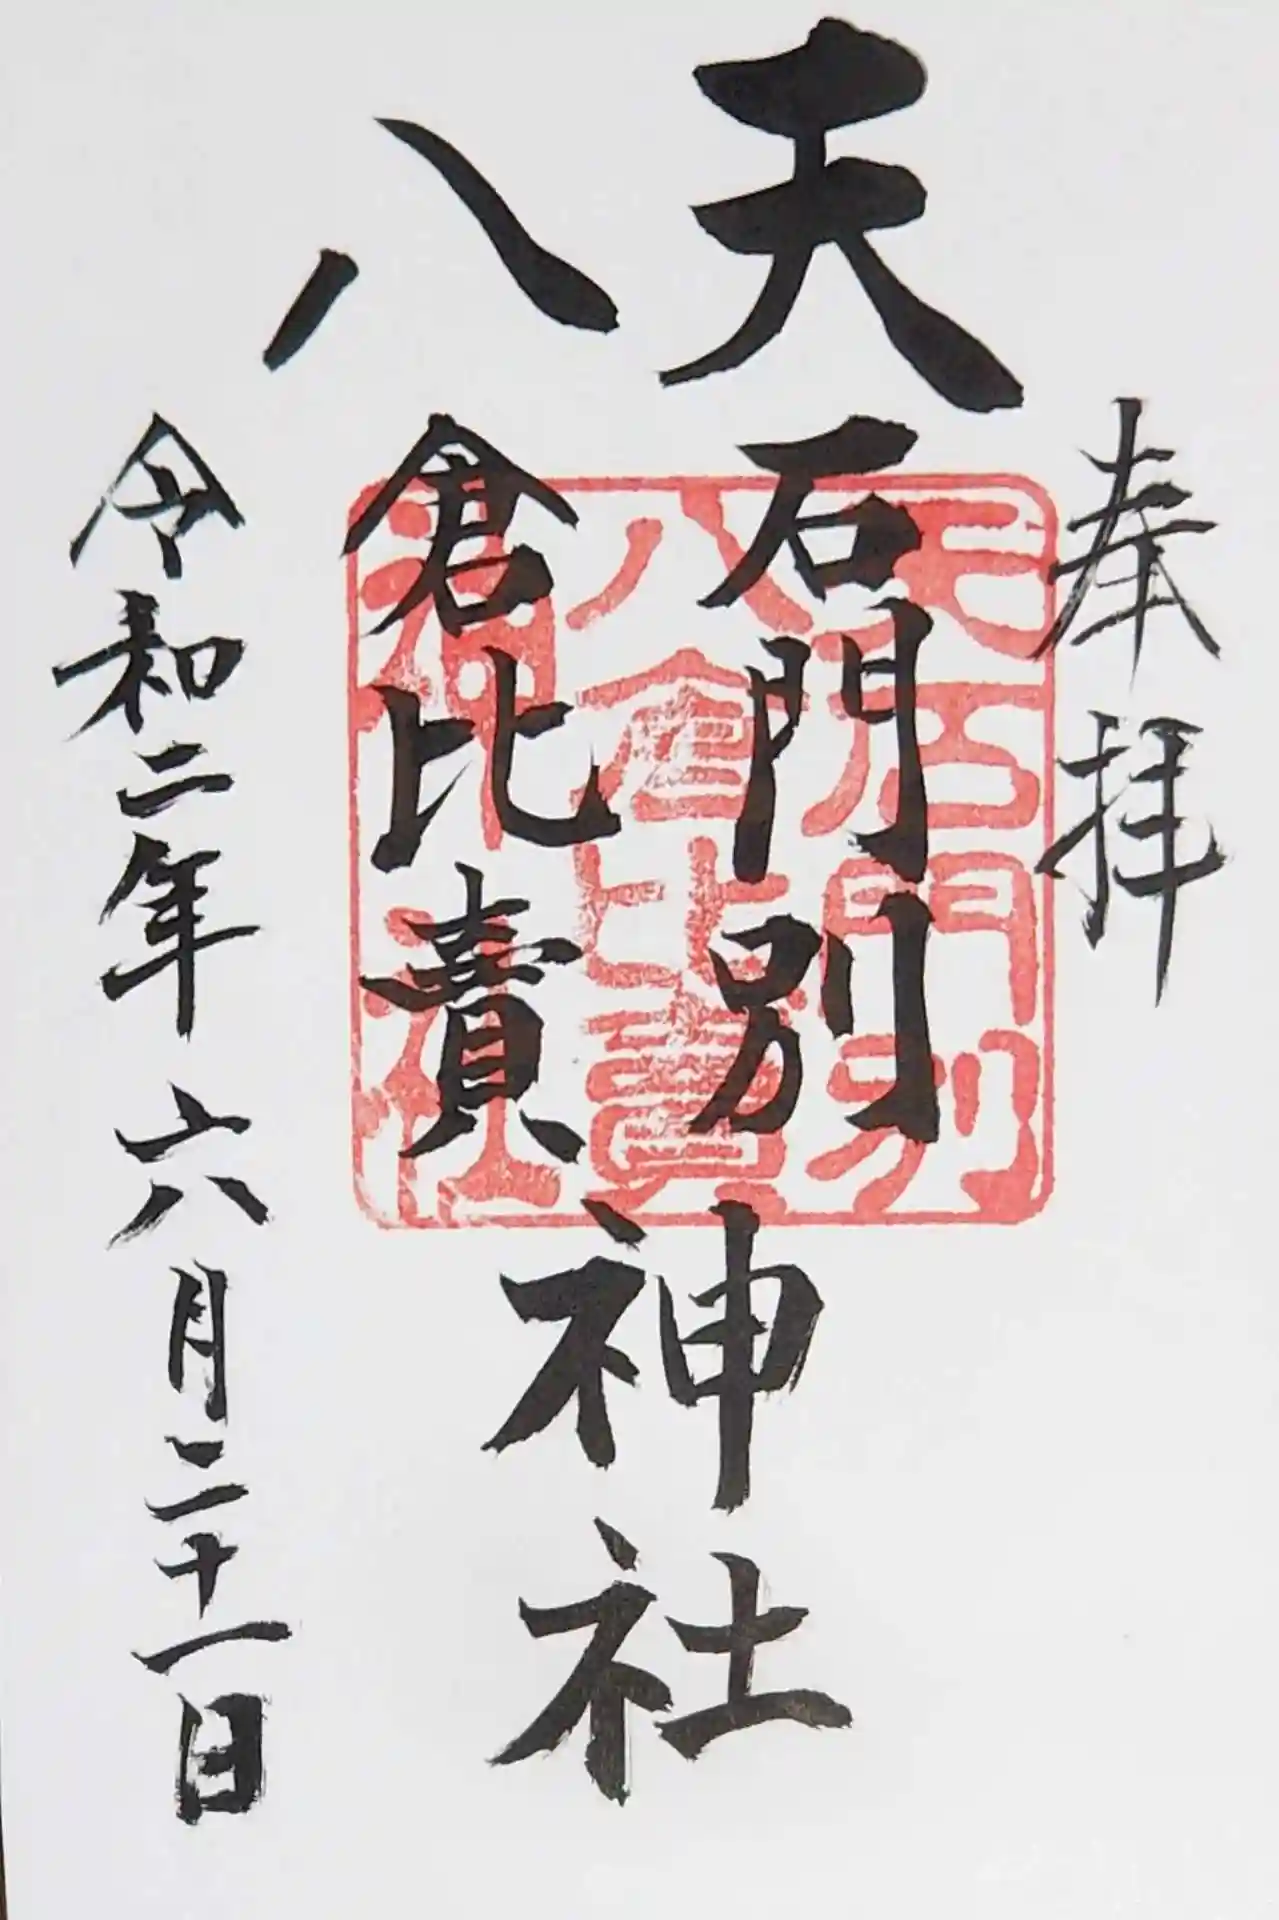 奉拝
天石門別
八倉比賣
神社
令和二年六月二十一日
天石門別
八倉比賣
神社